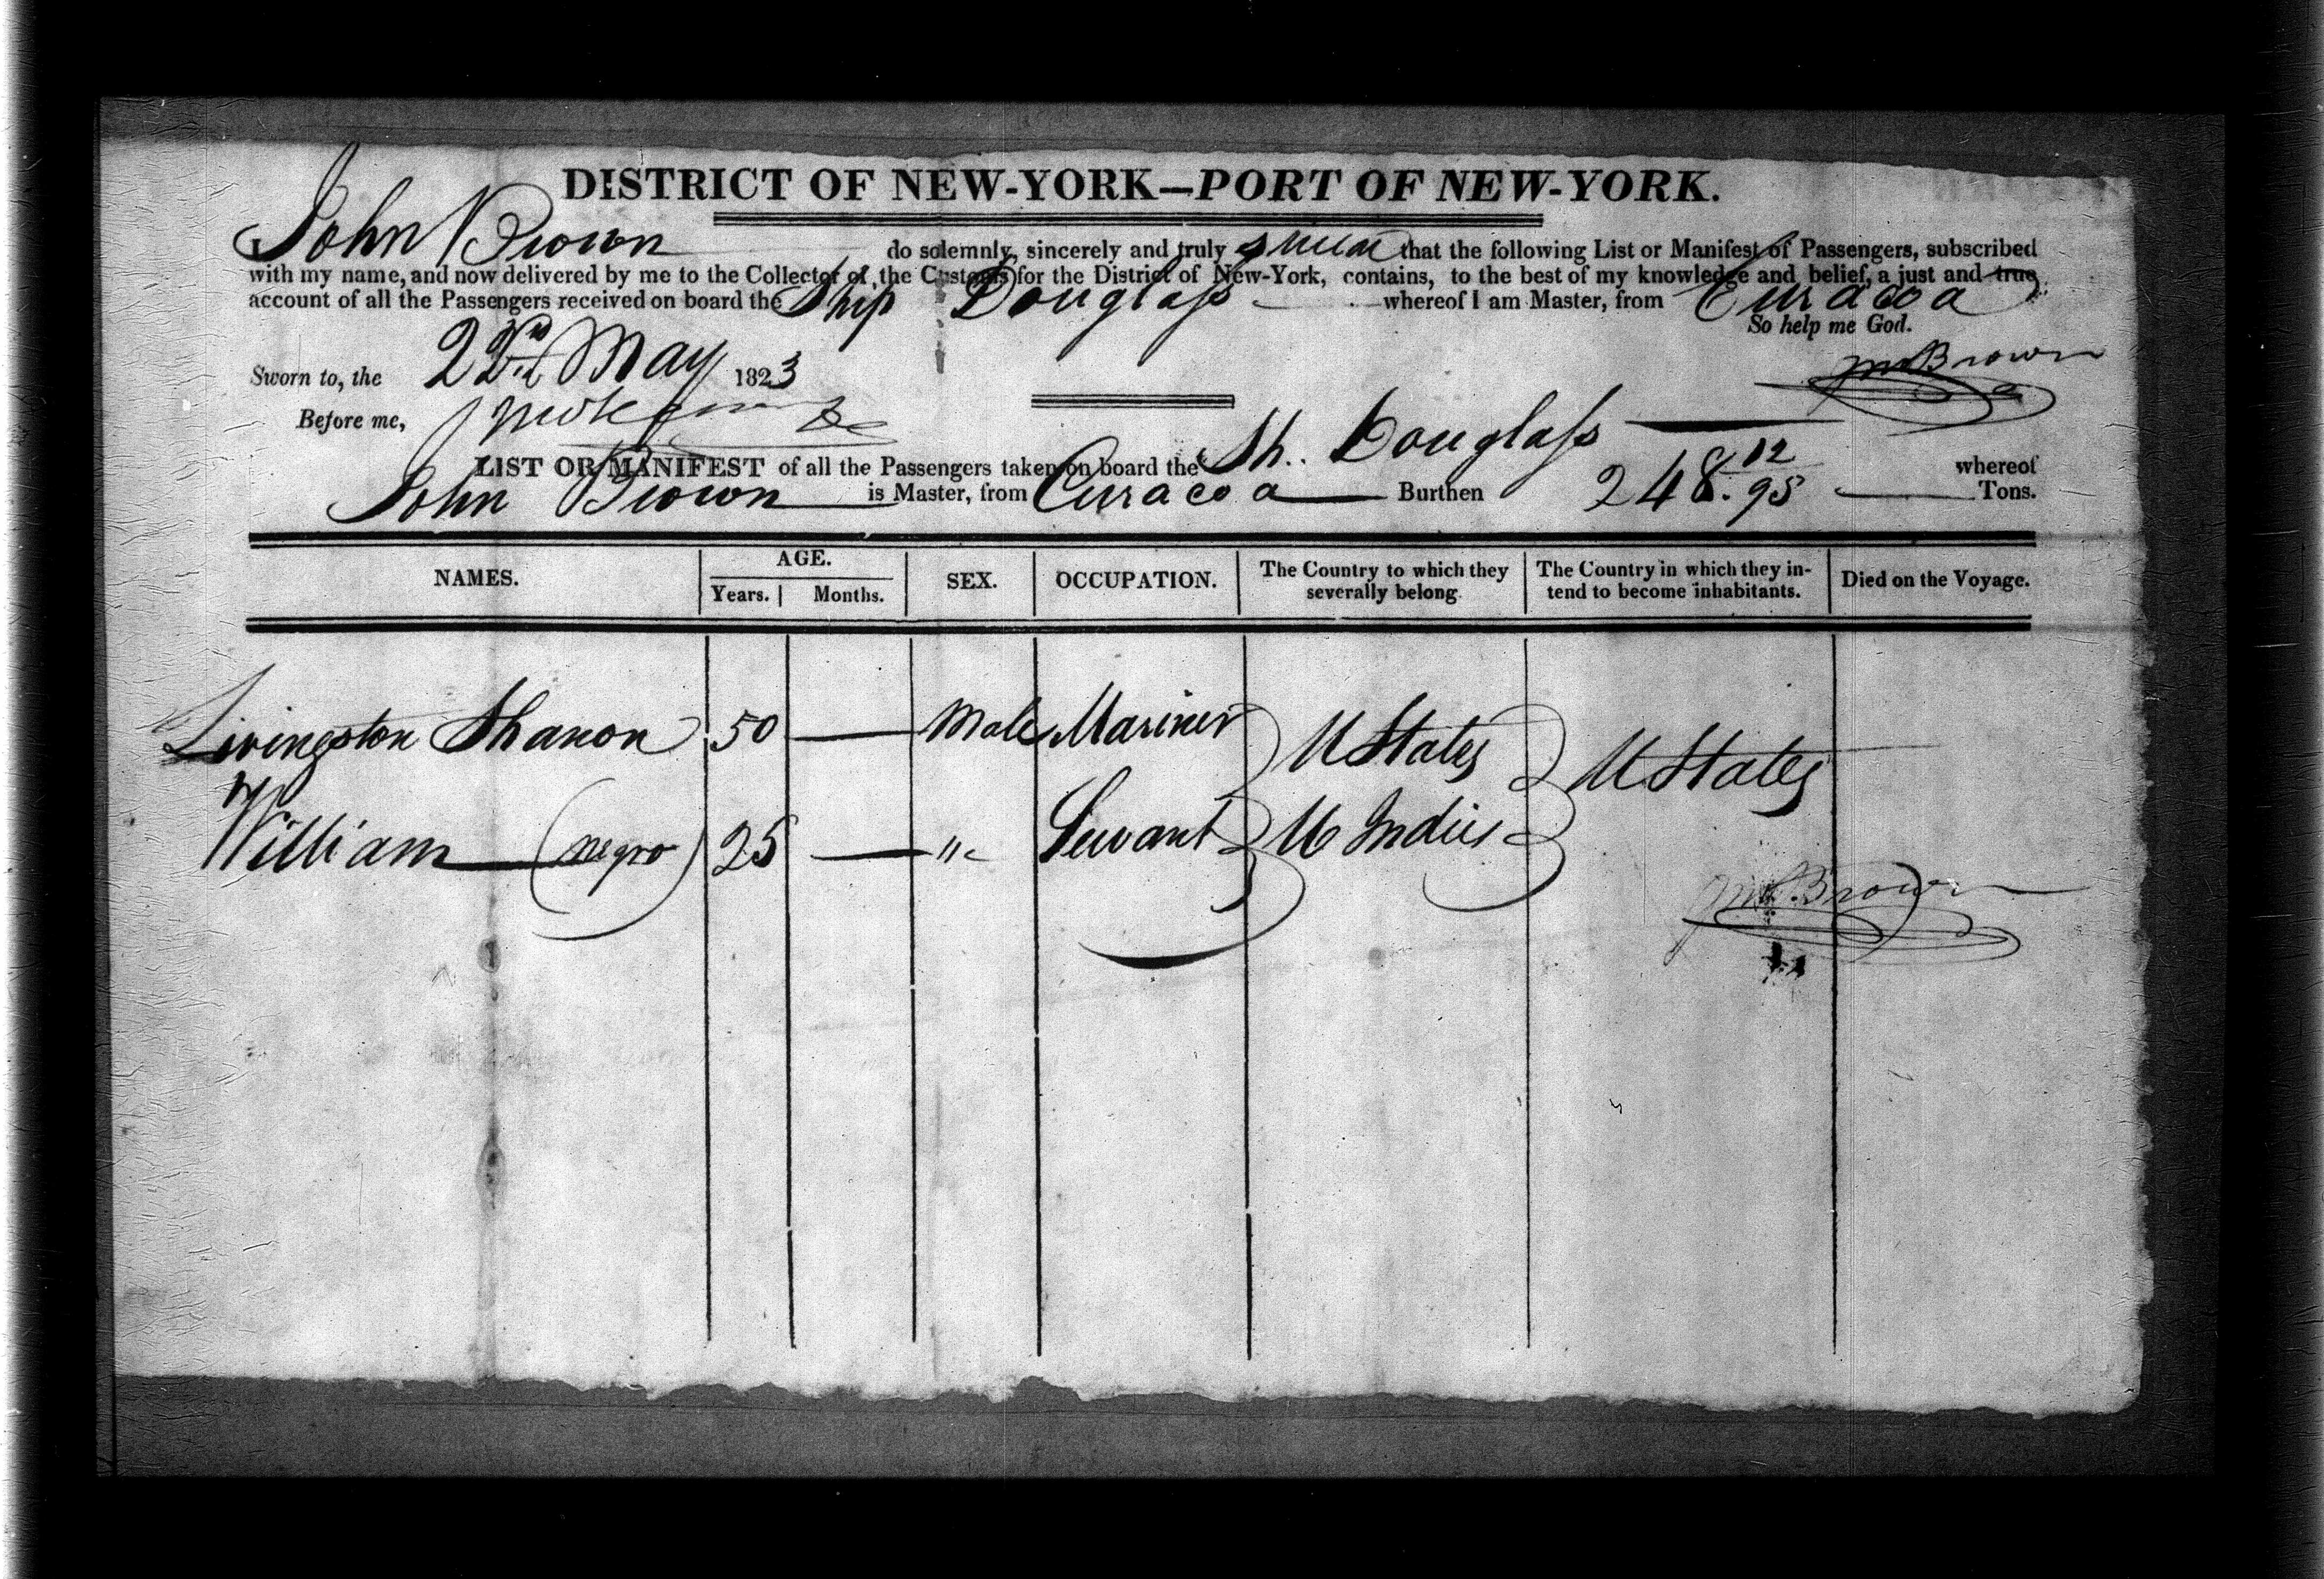 DISTRICT OF NEW-YORK—PORT OF NEW-YORK.
I John Brown do solemnly, sincerely and truly swear that the following List or Manifest of Passengers, subscribed
with my name, and now delivered by me to the Collector of the Customs for the District of New-York, contains, to the best of my knowledge and belief, a just and true
account of all the Passengers received on board the Ship Douglass whereof I am Master, from Curacoa
So help me God.
Sworn to, the 22nd May 1823
Jno Brown
Before me,
LIST OR MANIFEST of all the Passengers taken on board the Sh. Douglass whereof
John Brown is Master, from Curacoa Burthen 248. 12/95 Tons.
NAMES. AGE. Years. Months. SEX. OCCUPATION. The Country to which they severally belong. The Country in which they intend to become inhabitants. Died on the Voyage.
Livingston Shanon 50 — Male Mariner U States U States
William — (negro) 25 — " Servant W Indies
Jno Brown